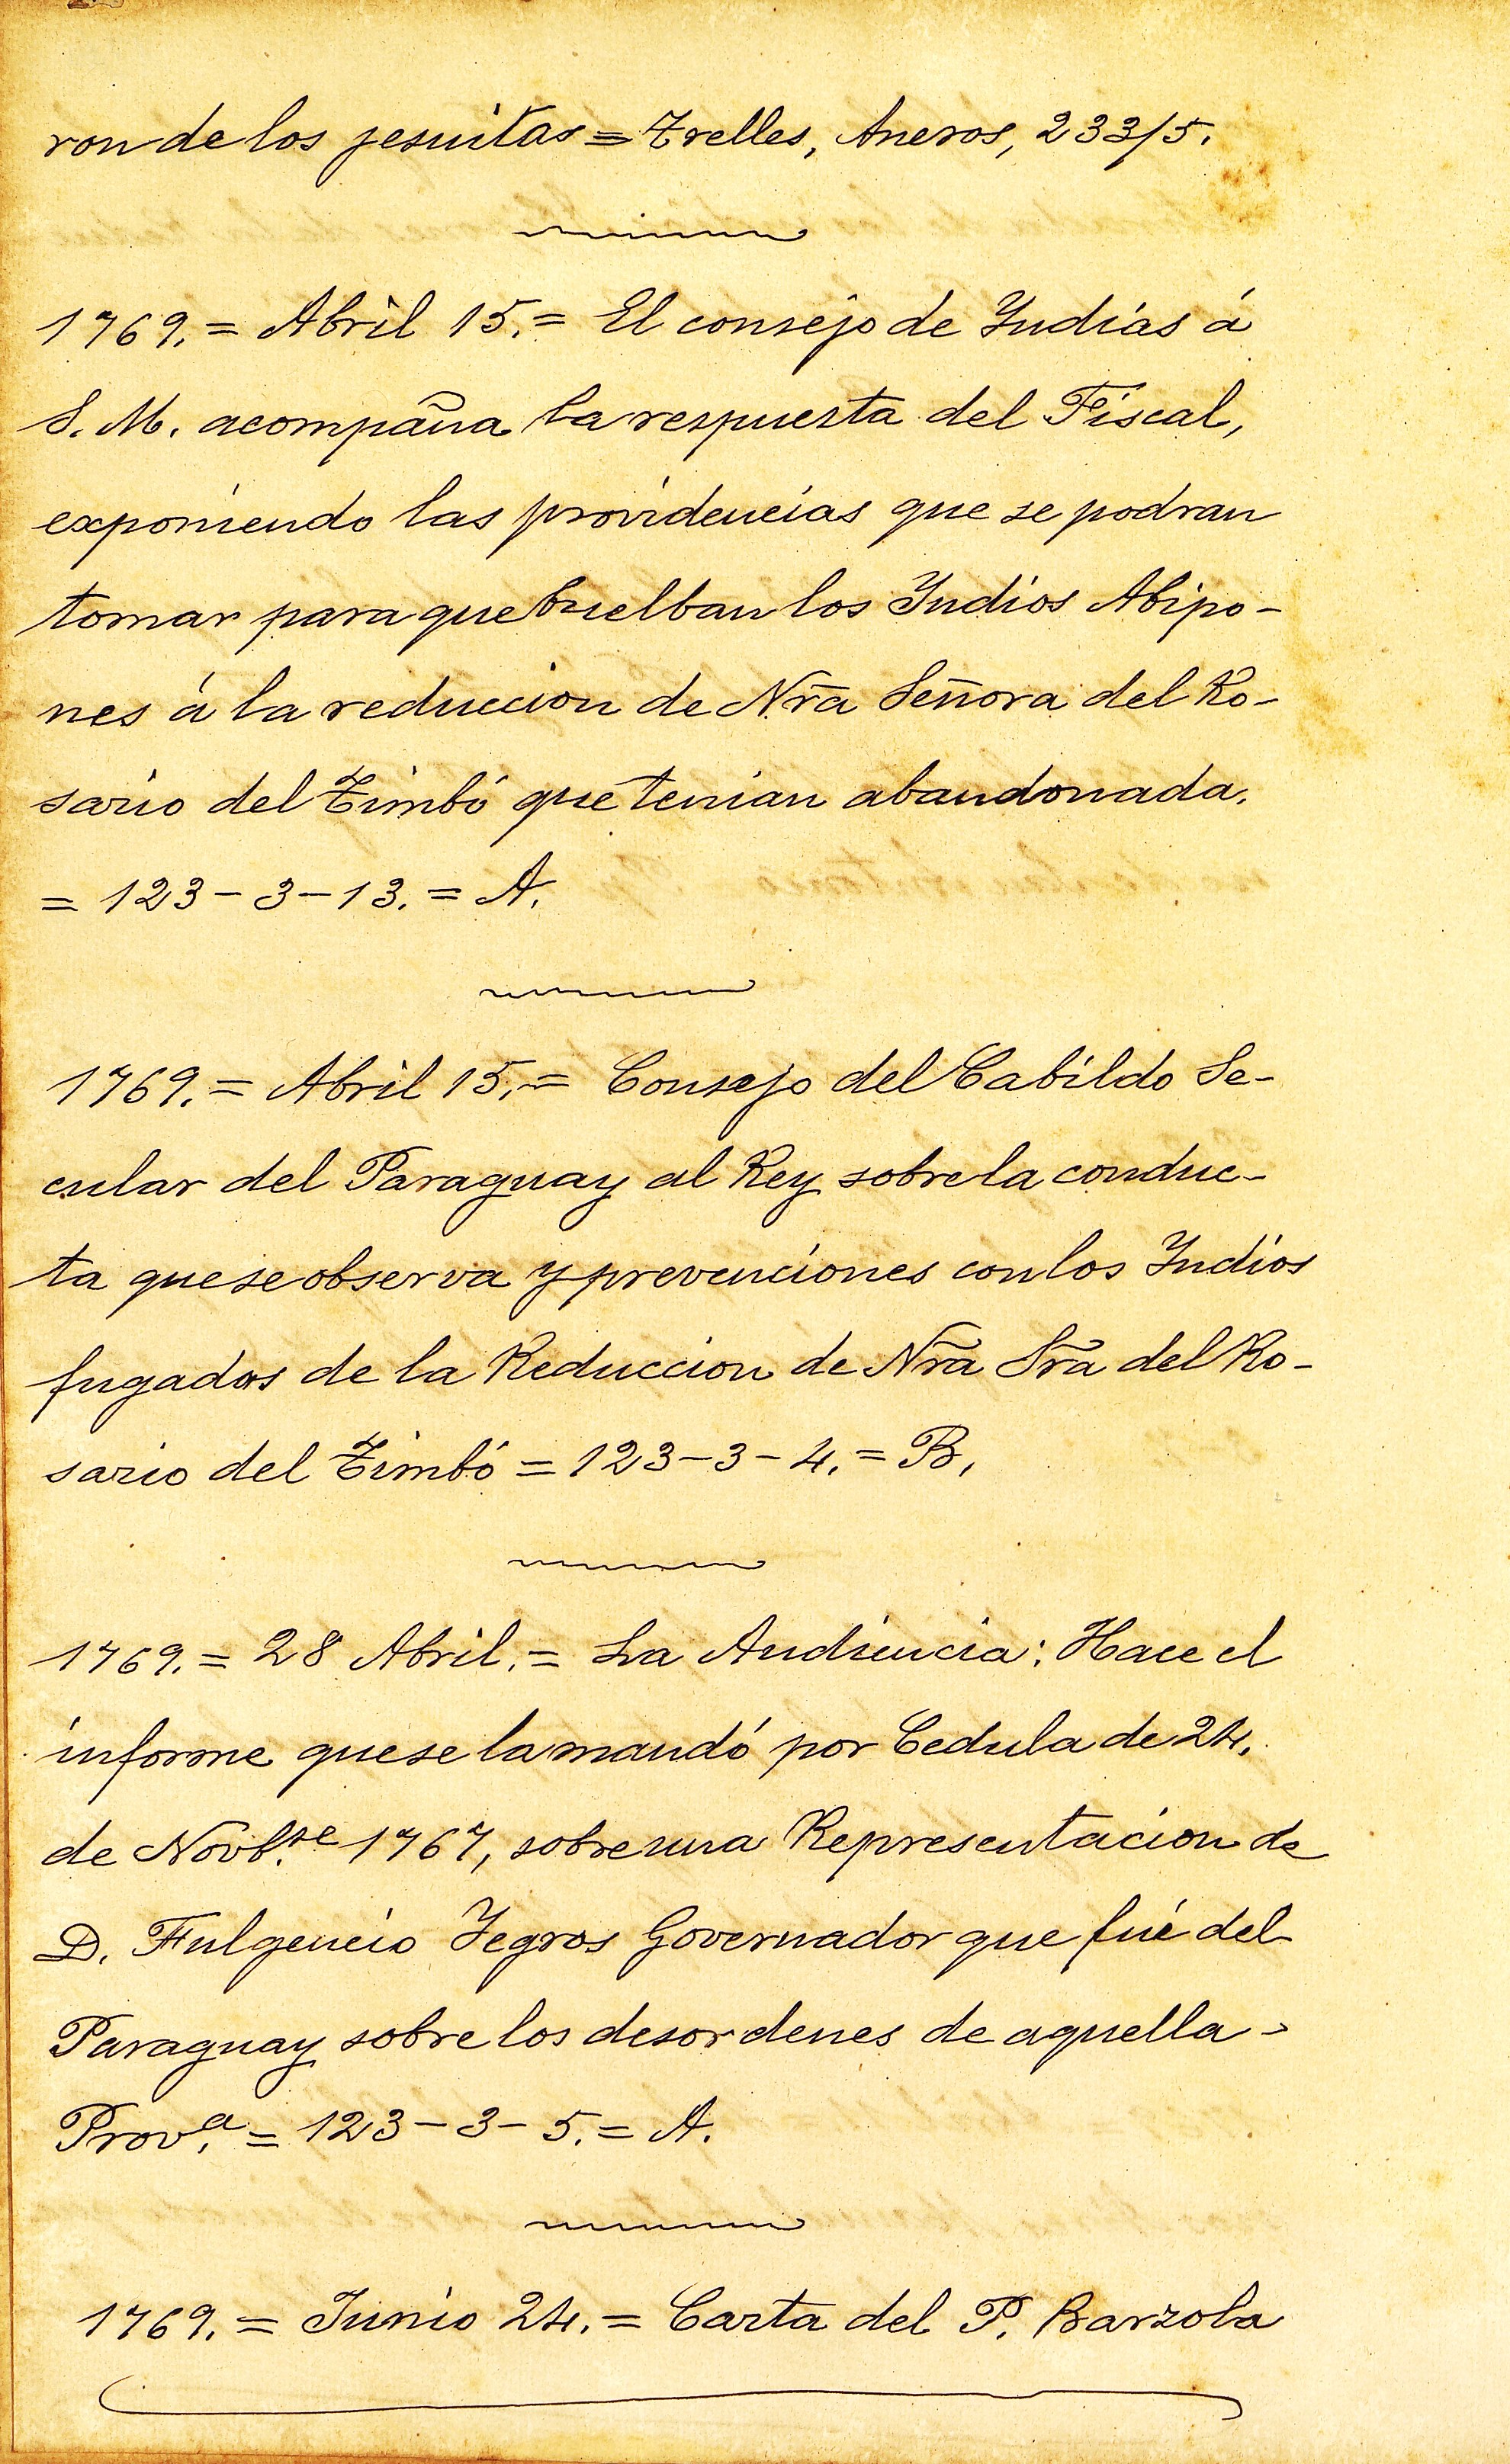 ron de los jesuitas = Trelles, Anexos, 233/5.
1769. = Abril 15. = El consejo de Indias á
S. M. acompaña la respuesta del Fiscal,
exponiendo las providencias que se podran
tomar para que buelban los Indios Abipo-
nes á la reduccion de Nr̃a Señora del Ro-
sario del Timbó que tenian abandonada.
= 123 - 3 - 13. = A.
1769. = Abril 15. = Consejo del Cabildo Se-
cular del Paraguay al Rey sobre la conduc-
ta que se observa y prevenciones con los Indios
fugados de la Reduccion de Nr̃a Sr̃a del Ro-
sario del Timbó = 123 - 3 - 4. = B.
1769. = 28 Abril. = La Audiencia: Hace el
informe que se la mandó por Cedula de 24.
de Novb.re 1767, sobre una Representacion de
D. Fulgencio Yegros Governador que fué del
Paraguay sobre los desordenes de aquella -
Prov.a = 123 - 3 - 5. = A.
1769. = Junio 24. = Carta del P. Barzola